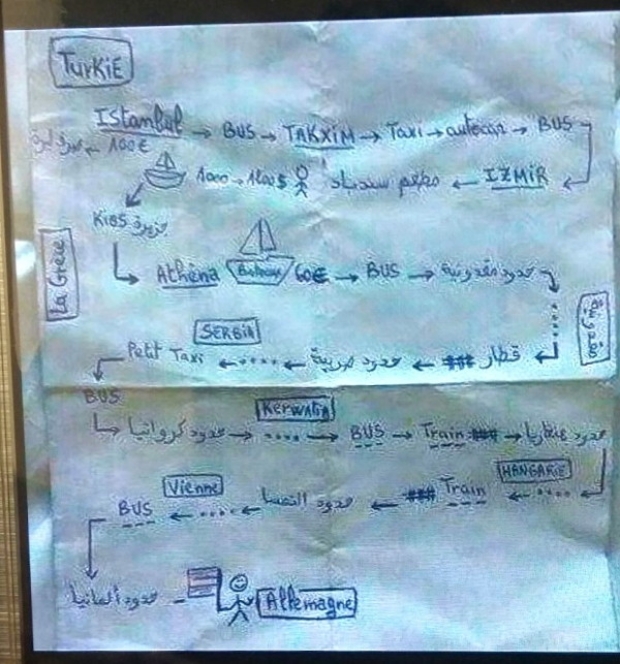 TurKiE
IStanbul → BUS → TAKXIM → Taxi → autocar → BUS
100€
1000 → 1200$ مطعم سندباد ← IZMiR
KiOS جزيرة
La Grèce
Athèna Bateau 60€ → BUS → حدود مقدونية
مقدونية
SERBIA
Petit Taxi ← .... ← حدود صربية ← قطار
BUS
KerwAtia
حدود كرواتيا → .... → BUS → Train → حدود هنغاريا
HANGARiE
Vienne
BUS ← .... ← حدود النمسا ← Train ← ....
حدود ألمانيا
Allemagne